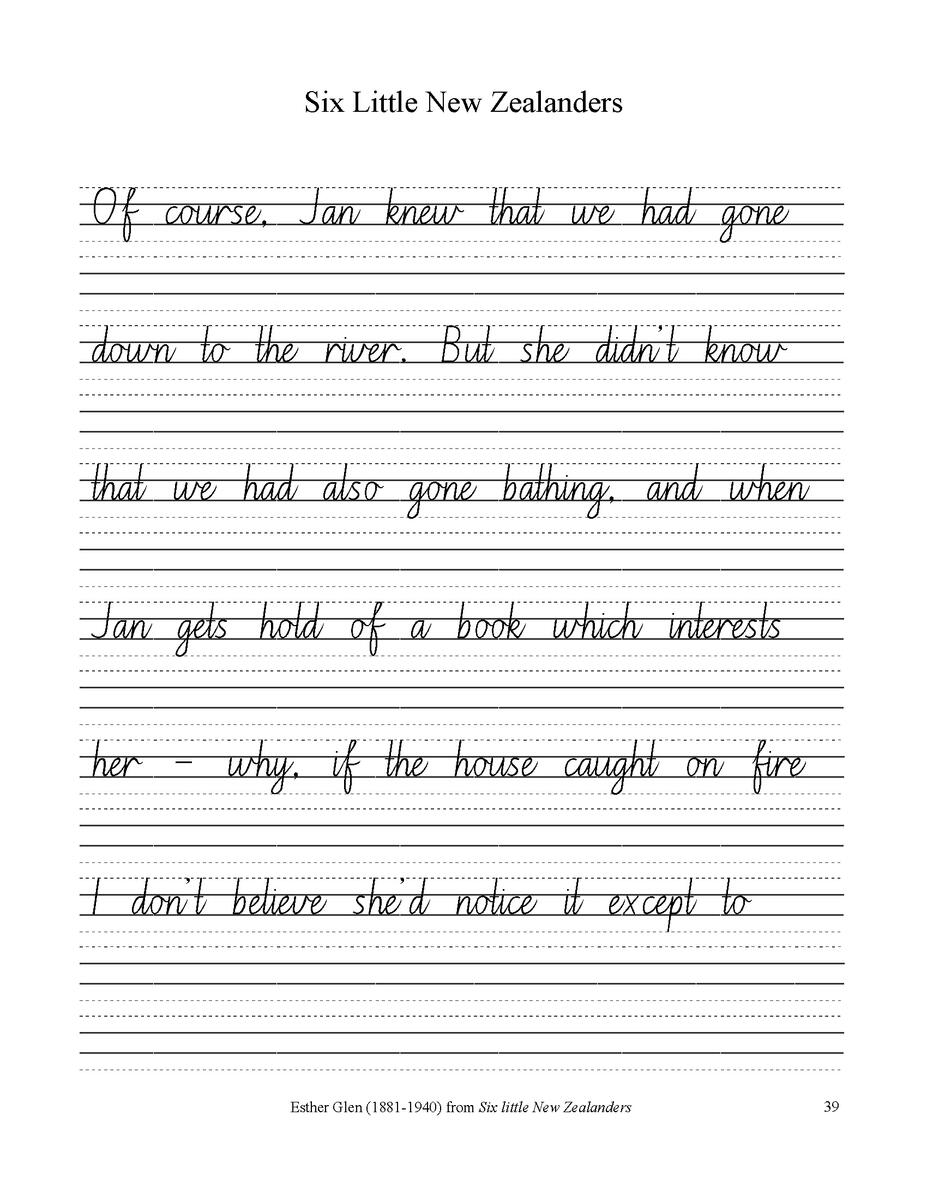 Six Little New Zealanders
Of course, Jan knew that we had gone
down to the river. But she didn't know
that we had also gone bathing, and when
Jan gets hold of a book which interests
her - why, if the house caught on fire
I don't believe she'd notice it except to
Esther Glen (1881-1940) from Six little New Zealanders 39